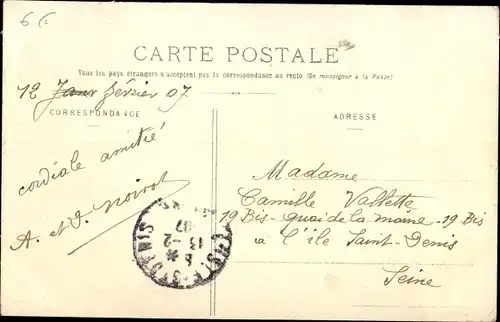 6 c
CARTE POSTALE
Tous les pays étrangers n'acceptent pas la correspondance au recto (Se renseigner à la Poste)
12 Janv février 07
CORRESPONDANCE
ADRESSE
cordiale amitié
A. et J. Noirot
Madame
Camille Vallette
19 Bis - quai de la marne - 19 Bis
à l'île Saint-Denis
Seine
ST DENIS
13 - 2
07